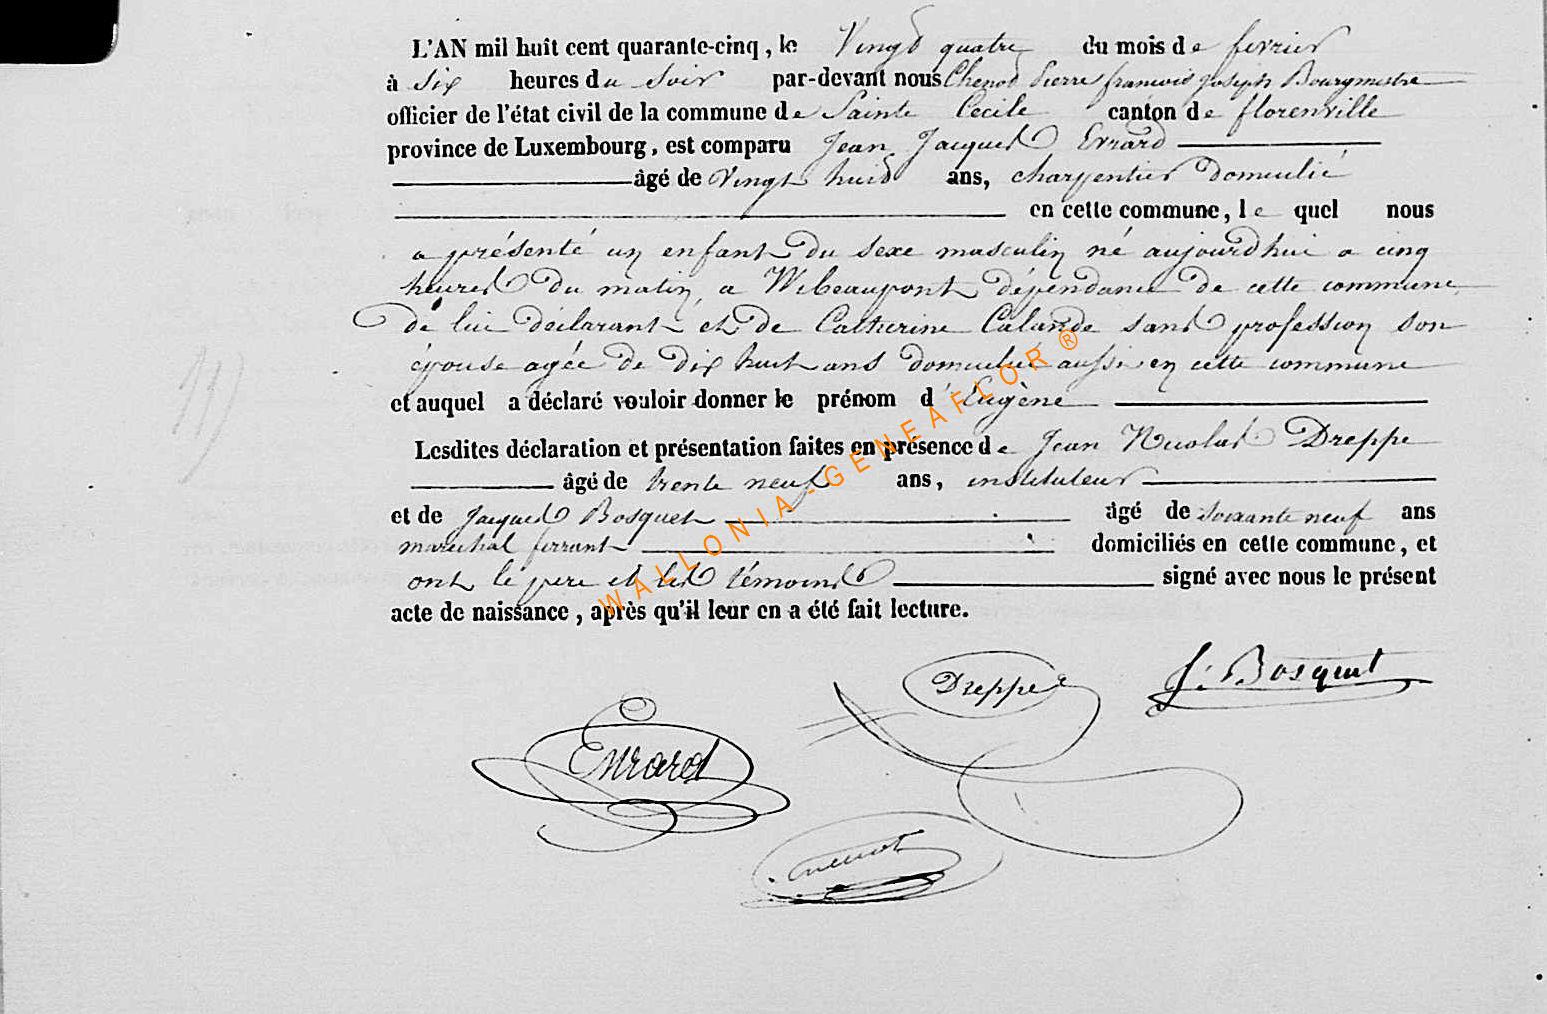 L'AN mil huit cent quarante-cinq, le Vingt quatre du mois de fevrier
à Six heures du Soir par-devant nous Chenot Pierre françois joseph Bourgmestre
officier de l'état civil de la commune de Sainte Cecile canton de florenville
province de Luxembourg, est comparu Jean Jacques Evrard
âgé de Vingt huit ans, charpentier Domicilié
en cette commune, le quel nous
a présenté un enfant Du Sexe masculin né aujourd'hui a cinq
heures Du matin, a Wibeaupont dépendance De cette commune
de lui déclarant et de Catherine Calande sans profession son
épouse agée De Dix huit ans domiciliée aussi en cette commune
et auquel a déclaré vouloir donner le prénom d'Eugène
Lesdites déclaration et présentation faites en présence de Jean Nicolas Dreppe
âgé de trente neuf ans, instituteur
et de Jacques Bosquet âgé de soixante neuf ans
marechal ferrant domiciliés en cette commune, et
ont le pere et les témoins signé avec nous le présent
acte de naissance, après qu'il leur en a été fait lecture.
WALLONIA-GENEAFLOR ®
Dreppe
J. Bosquet
Evrard
Chenot